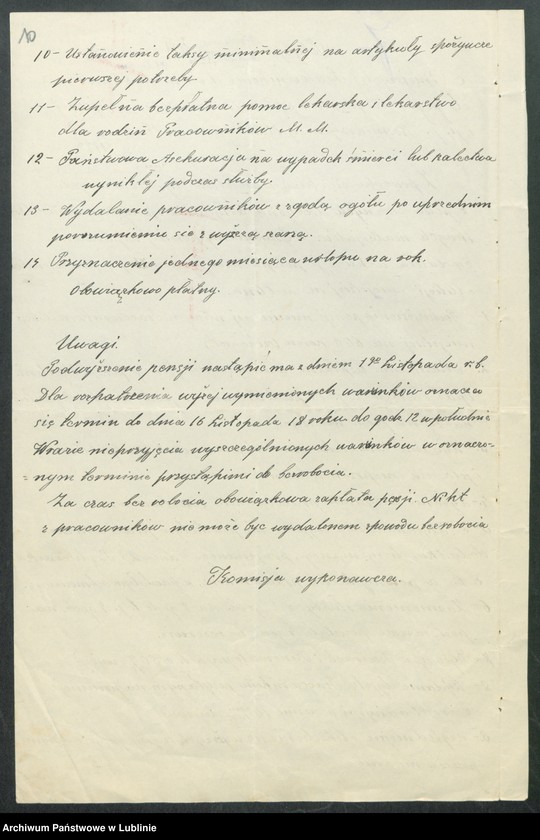 10
10 – Ustanowienie taksy minimalnej na artykuły spożycze
pierwszej potrzeby
11 – Zupełna bezpłatna pomoc lekarska i lekarstwo
dla rodzin Pracowników M. M.
12 – Państwowa Asekuracja na wypadek śmierci lub kalectwa
wynikłej podczas służby.
13 – Wydalanie pracowników z zgodą ogółu po uprzednim
porozumieniu się z wyższą
14 Przyznaczenie jednego miesiąca urlopu na rok.
Obowiązkowo płatny.
Uwagi.
Podwyższenie pensji nastąpić ma z dniem 1go Listopada r. b.
Dla rozpatrzenia wyżej wymienionych warunków oznacza
się termin do dnia 16 Listopada 18 roku do godz 12 w południe
Wrazie nieprzyjęcia wyszczególnionych warunków w oznaczo-
=nym terminie przystąpimi do bezrobocia.
Za czas bezrobocia obowiązkowa zapłata pensji. Nikt
z pracowników nie może być wydalonem zpowodu bezrobocia
Komisja wykonawcza.
Archiwum Państwowe w Lublinie